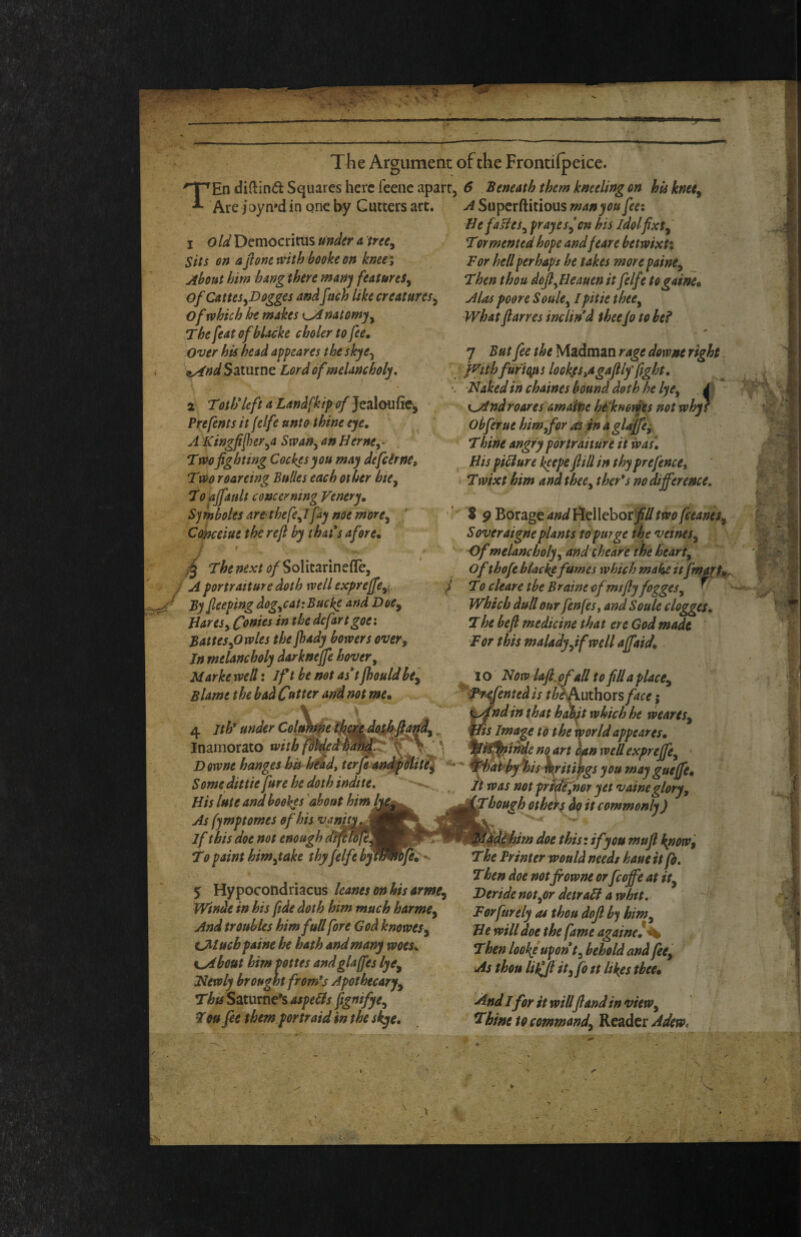 The Argument of the Frontispeice.
TEn distinct Squares here seene apart,
Are joyn'd in one by Cutters art.
1 Old Democritus under a tree,
Sits on a stone with booke on knee;
About him hang there many features,
Of Cattes, Dogges and such like creatures,
Of which he makes Anatomy,
The seat of blacke choler to see.
Over his head appeares the skye,
And Saturne Lord of melancholy.
2 Toth' left a Landskip of Jealousie,
Presents it selfe unto thine eye.
A Kingfisher, a Swan, an Herne,
Two fighting Cockes you may descerne,
Two roareing Bulles each other hie,
To assault concerning Venery.
Symboles are these, I say noe more,
Conceiue the rest by that's afore.
3 The next of Solitarinesse,
A portraiture doth well expresse,
By sleeping dog, cat: Bucke and Doe,
Hares, Conies in the desart goe:
Battes, Owles the shady bowers over,
In melancholy darknesse hover,
Marke well: If't be not as't should be,
Blame the bad Cutter and not me.
4 Ith' under Columne there doth stand,
Inamorato with folded hand.
Downe hanges his head, terse and polite,
Some dittie sure he doth indite.
His lute and bookes about him lye,
As symptomes of his vanity.
If this doe not enough disclose,
To paint him, take thy selfe by th' nose.
5 Hypocondriacus leanes on his arme,
Winde in his side doth him much harme,
And troubles him full sore God knowes,
Much paine he hath and many woes.
About him pottes and glasses lye,
Newly brought from's Apothecary,
This Saturne's aspects signifye,
You see them portraid in the skye.
6 Beneath them kneeling on his knee,
A Superstitious man you see:
He fastes, prayes, on his Idol fixt,
Tormented hope and feare betwixt:
For hell perhaps he takes more paine,
Then thou dost, Heauen it selfe to gaine.
Alas poore Soule, I pitie thee,
What starres inclin'd thee so to be?
7 But see the Madman rage downe right
With furious lookes, a gastly sight.
Naked in chaines bound doth he lye,
And roares amaine he knowes not why?
Obserue him, for as in a glasse,
Thine angry portraiture it was.
His picture keepe still in thy presence,
Twixt him and thee, ther's no difference.
8 9 Borage and Hellebor fill two sceanes,
Soveraigne plants to purge the veines,
Of melancholy, and cheare the heart,
Of those blacke fumes which make it smart.
To cleare the Braine of misty fogges,
Which dull our senses, and Soule clogges.
The best medicine that ere God made
For this malady, if well assaid.
10 Now last of all to fill a place,
Presented is the Authors face;
And in that habit which he weares,
His Image to the world appeares.
His minde no art can well expresse,
That by his writings you may guesse.
It was not pride, nor yet vaine glory,
(Though others do it commonly)
Made him doe this: if you must know,
The Printer would needs haue it so.
Then doe not frowne or scoffe at it,
Deride not, or detract a whit.
For surely as thou dost by him,
He will doe the same againe.
Then looke upon't, behold and see,
As thou lik'st it, so it likes thee.
And I for it will stand in view,
Thine to command, Reader Adew.